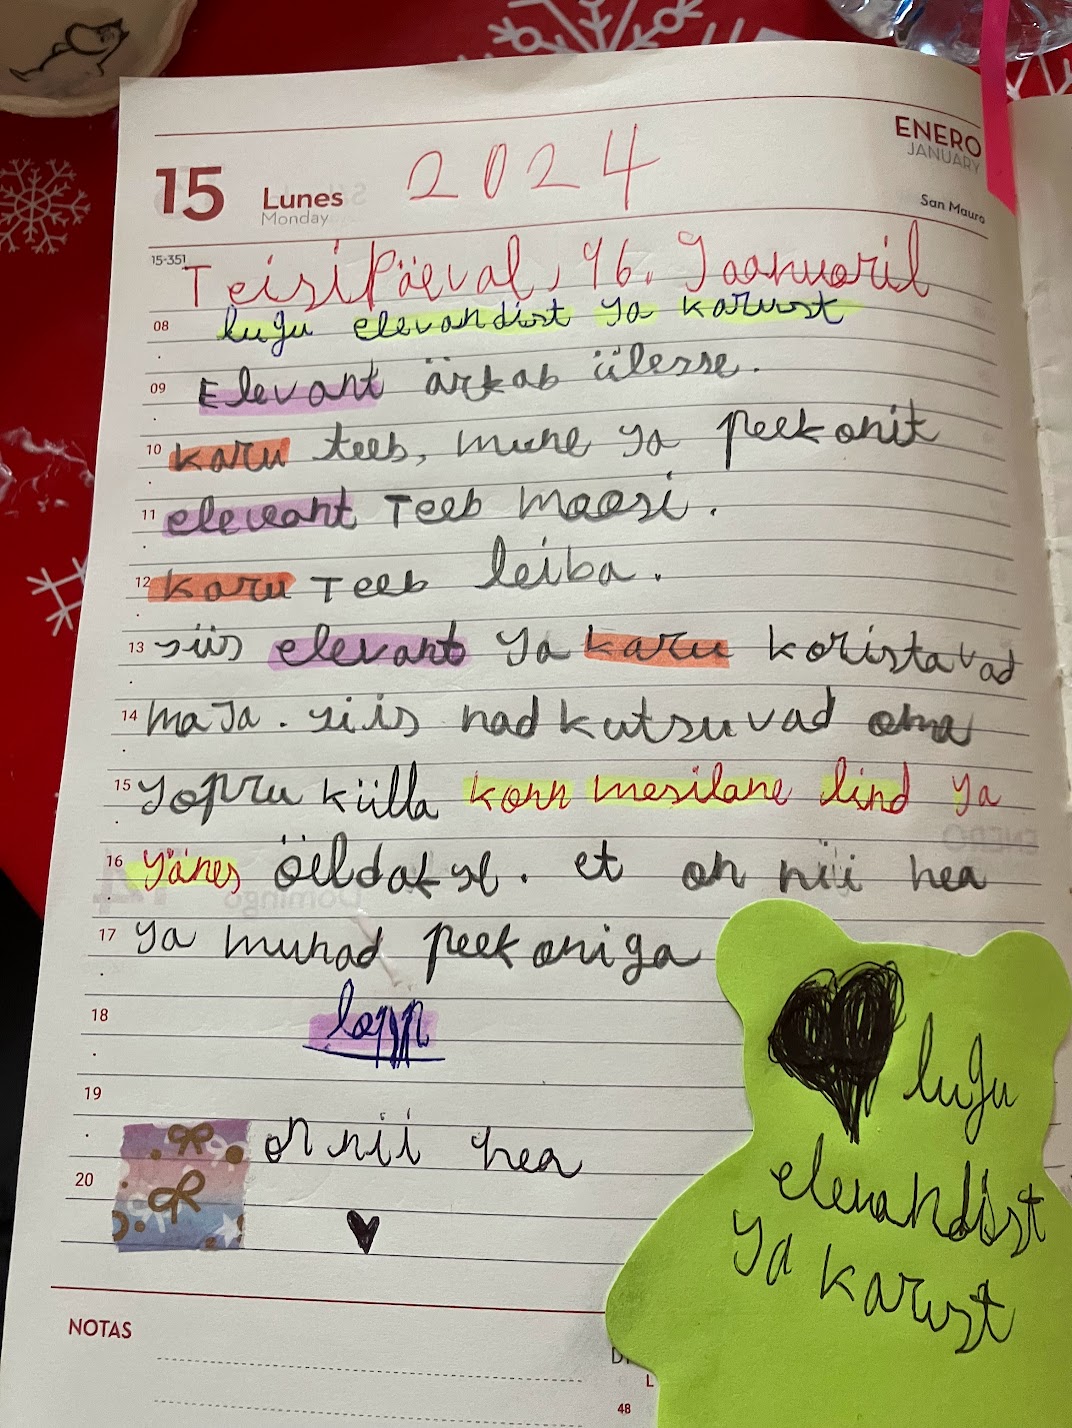 ENERO
JANUARY
15 Lunes 2024
Monday
San Mauro
15-351
Teisipäeval, 16. Jaanuaril
08 lugu elevandist ja karust
09 Elevant ärkab ülesse.
10 karu teeb, mune ja peekonit
11 elevant Teeb maasi.
12 karu Teeb leiba.
13 siis elevant ja karu koristavad
14 maja. siis nad kutsuvad oma
15 jopru külla konn mesilane lind ja
16 jänes öeldakse. et on nii hea
17 ja munad peekoniga
18 lopp
19
on nii hea
20
NOTAS
lugu
elevandist
ja karust
D
L
48